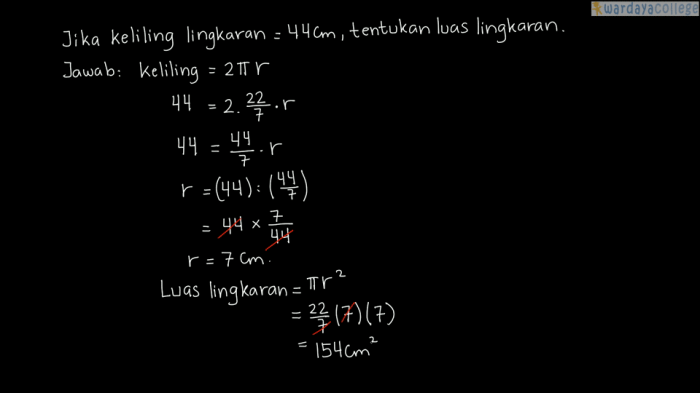 wardayacollege
Jika keliling lingkaran = 44cm, tentukan luas lingkaran.
Jawab: Keliling = 2πr
44 = 2 . 22/7 . r
44 = 44/7 . r
r = (44) : (44/7)
= 44 × 7/44
r = 7 cm.
Luas lingkaran = πr²
= 22/7 (7)(7)
= 154cm²